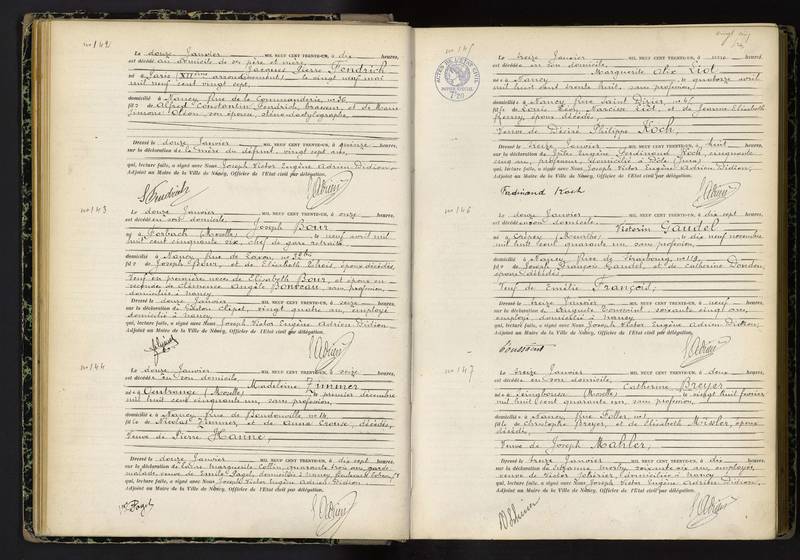 no 142
Le douze Janvier MIL NEUF CENT TRENTE-UN, à dix heures,
est décédé au domicile de ses père et mère,
Jacques Pierre Fendrich
né à Paris arrondissement, le vingt neuf mai
mil neuf cent vingt sept,
domicilié à Nancy, rue de la Commanderie, no 36,
fils de Alfred Constantin Fendrich, graveur, et de Marie
Simone Olson, son épouse, sténo-dactylographe,
Dressé le douze Janvier MIL NEUF CENT TRENTE-UN, à quinze heures,
sur la déclaration de la mère du défunt, vingt sept ans,
qui, lecture faite, a signé avec Nous Joseph Victor Eugène Adrien Didion,
Adjoint au Maire de la Ville de Nancy, Officier de l'Etat civil par délégation.
no 143
Le douze Janvier MIL NEUF CENT TRENTE-UN, à onze heures,
est décédé en son domicile,
Joseph Bour
né à Forbach (Moselle) le neuf avril mil
huit cent cinquante six, chef de gare retraité,
domicilié à Nancy, rue de Saxon,
fils de Joseph Bour, et de Elisabeth époux décédés,
Veuf en premières noces de Elisabeth Bour, et époux en
secondes de Clémence Angèle Bonneau, sans profession,
domiciliée à Nancy,
Dressé le douze Janvier MIL NEUF CENT TRENTE-UN, à seize heures,
sur la déclaration de Gaston Clipet, vingt quatre ans, employé
domicilié à Nancy,
qui, lecture faite, a signé avec Nous Joseph Victor Eugène Adrien Didion,
Adjoint au Maire de la Ville de Nancy, Officier de l'Etat civil par délégation.
no 144
Le douze Janvier MIL NEUF CENT TRENTE-UN, à heures,
est décédée en son domicile,
Madeleine Zimmer
née à Guntrange (Moselle) le premier décembre
mil huit cent cinquante un, sans profession,
domiciliée à Nancy, rue de Boudonville, no 14,
fille de Nicolas Zimmer, et de Anna décédés,
Veuve de Pierre Hanne,
Dressé le douze Janvier MIL NEUF CENT TRENTE-UN, à dix sept heures,
sur la déclaration de Marguerite Collin, quarante trois ans, garde
malade, veuve de Emile Paget, domiciliée à Nancy,
qui, lecture faite, a signé avec Nous Joseph Victor Eugène Adrien Didion,
Adjoint au Maire de la Ville de Nancy, Officier de l'Etat civil par délégation.
Paget
no 145
Le treize Janvier MIL NEUF CENT TRENTE-UN, à une heures,
est décédée en son domicile,
Marguerite Alix Liot
née à Nancy le quatorze avril
mil huit cent trente huit, sans profession,
domiciliée à Nancy, rue Saint Dizier,
fille de Louis Léon Narcisse Liot, et de Jeanne Elisabeth
époux décédés,
Veuve de Désiré Philippe Koch,
Dressé le treize Janvier MIL NEUF CENT TRENTE-UN, à huit heures,
sur la déclaration de Jules Eugène Ferdinand Koch, cinquante
cinq ans, professeur, domicilié à Dôle (Jura)
qui, lecture faite, a signé avec Nous Joseph Victor Eugène Adrien Didion,
Adjoint au Maire de la Ville de Nancy, Officier de l'Etat civil par délégation.
Ferdinand Koch
no 146
Le douze Janvier MIL NEUF CENT TRENTE-UN, à dix sept heures,
est décédé en son domicile,
Victorin Gaudel
né à Crépey (Meurthe) le dix neuf novembre
mil huit cent quarante un, sans profession,
domicilié à Nancy, rue de Strasbourg, no 119,
fils de Joseph François Gaudel, et de Catherine Dondon,
époux décédés,
Veuf de Emélie François,
Dressé le treize Janvier MIL NEUF CENT TRENTE-UN, à neuf heures,
sur la déclaration de Auguste Toussaint, soixante cinq ans,
employé domicilié à Nancy
qui, lecture faite, a signé avec Nous Joseph Victor Eugène Adrien Didion,
Adjoint au Maire de la Ville de Nancy, Officier de l'Etat civil par délégation.
Toussaint
no 147
Le treize Janvier MIL NEUF CENT TRENTE-UN, à deux heures,
est décédée en son domicile,
Catherine Breyer
née à (Moselle) le vingt huit février
mil huit cent quarante six, sans profession,
domiciliée à Nancy, rue Foller, no 1,
fille de Christophe Breyer, et de Elisabeth Missler, époux
décédés,
Veuve de Joseph Mahler,
Dressé le treize Janvier MIL NEUF CENT TRENTE-UN, à dix heures,
sur la déclaration de Suzanne soixante six ans, employée,
veuve de Victor domiciliée à Nancy
qui, lecture faite, a signé avec Nous Joseph Victor Eugène Adrien Didion,
Adjoint au Maire de la Ville de Nancy, Officier de l'Etat civil par délégation.